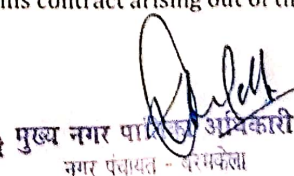 his contract arising out of th
मुख्य नगर पालिका अधिकारी
नगर पंचायत - बरमकेला